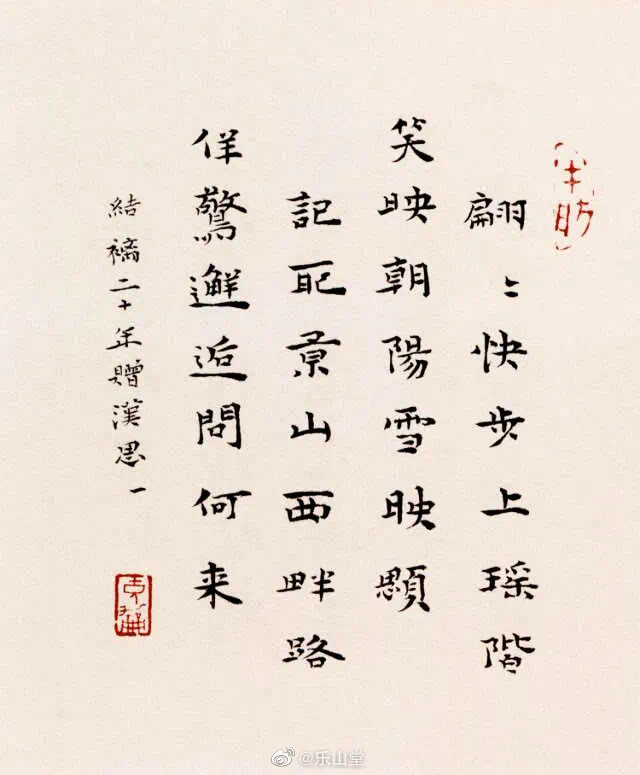 翩〻快步上瑶階
笑映朝陽雪映顋
記取景山西畔路
佯驚邂逅問何来
結褵二十年贈漢思一
@乐山堂